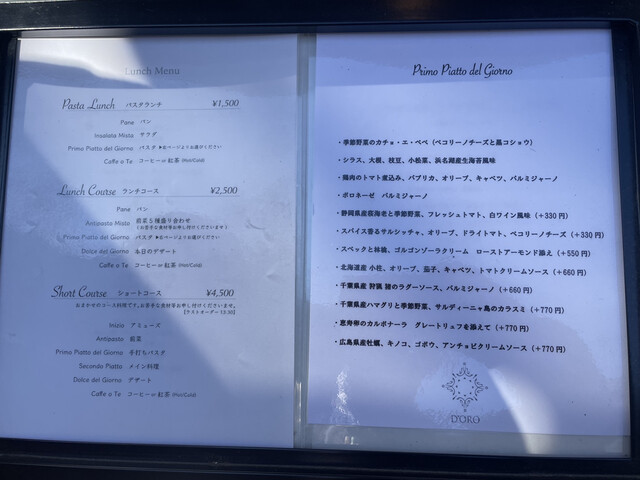 Lunch Menu
Pasta Lunch パスタランチ ¥1,500
Pane パン
Insalata Mista サラダ
Primo Piatto del Giorno パスタ ★右ページよりお選びください
Caffe o Te コーヒーor紅茶 (Hot/Cold)
Lunch Course ランチコース ¥2,500
Pane パン
Antipasto Misto 前菜5種盛り合わせ
(お苦手な食材等お申し付けくださいませ)
Primo Piatto del Giorno パスタ ★右ページよりお選びください
Dolce del Giorno 本日のデザート
Caffe o Te コーヒーor紅茶 (Hot/Cold)
Short Course ショートコース ¥4,500
おまかせのコース料理です。お苦手な食材等お申し付けくださいませ。
【ラストオーダー13:30】
Inizio アミューズ
Antipasto 前菜
Primo Piatto del Giorno 手打ちパスタ
Secondo Piatto メイン料理
Dolce del Giorno デザート
Caffe o Te コーヒーor紅茶 (Hot/Cold)
Primo Piatto del Giorno
・季節野菜のカチョ・エ・ペペ (ペコリーノチーズと黒コショウ)
・シラス、大根、枝豆、小松菜、浜名湖産生海苔風味
・鶏肉のトマト煮込み、パプリカ、オリーブ、キャベツ、パルミジャーノ
・ボロネーゼ パルミジャーノ
・静岡県産桜海老と季節野菜、フレッシュトマト、白ワイン風味 (+330円)
・スパイス香るサルシッチャ、オリーブ、ドライトマト、ペコリーノチーズ (+330円)
・スペックと林檎、ゴルゴンゾーラクリーム ローストアーモンド添え (+550円)
・北海道産 小柱、オリーブ、茄子、キャベツ、トマトクリームソース (+660円)
・千葉県産 狩猟 猪のラグーソース、パルミジャーノ (+660円)
・千葉県産ハマグリと季節野菜、サルディーニャ島のカラスミ (+770円)
・恵寿卵のカルボナーラ グレートリュフを添えて (+770円)
・広島県産牡蠣、キノコ、ゴボウ、アンチョビクリームソース (+770円)
D'ORO